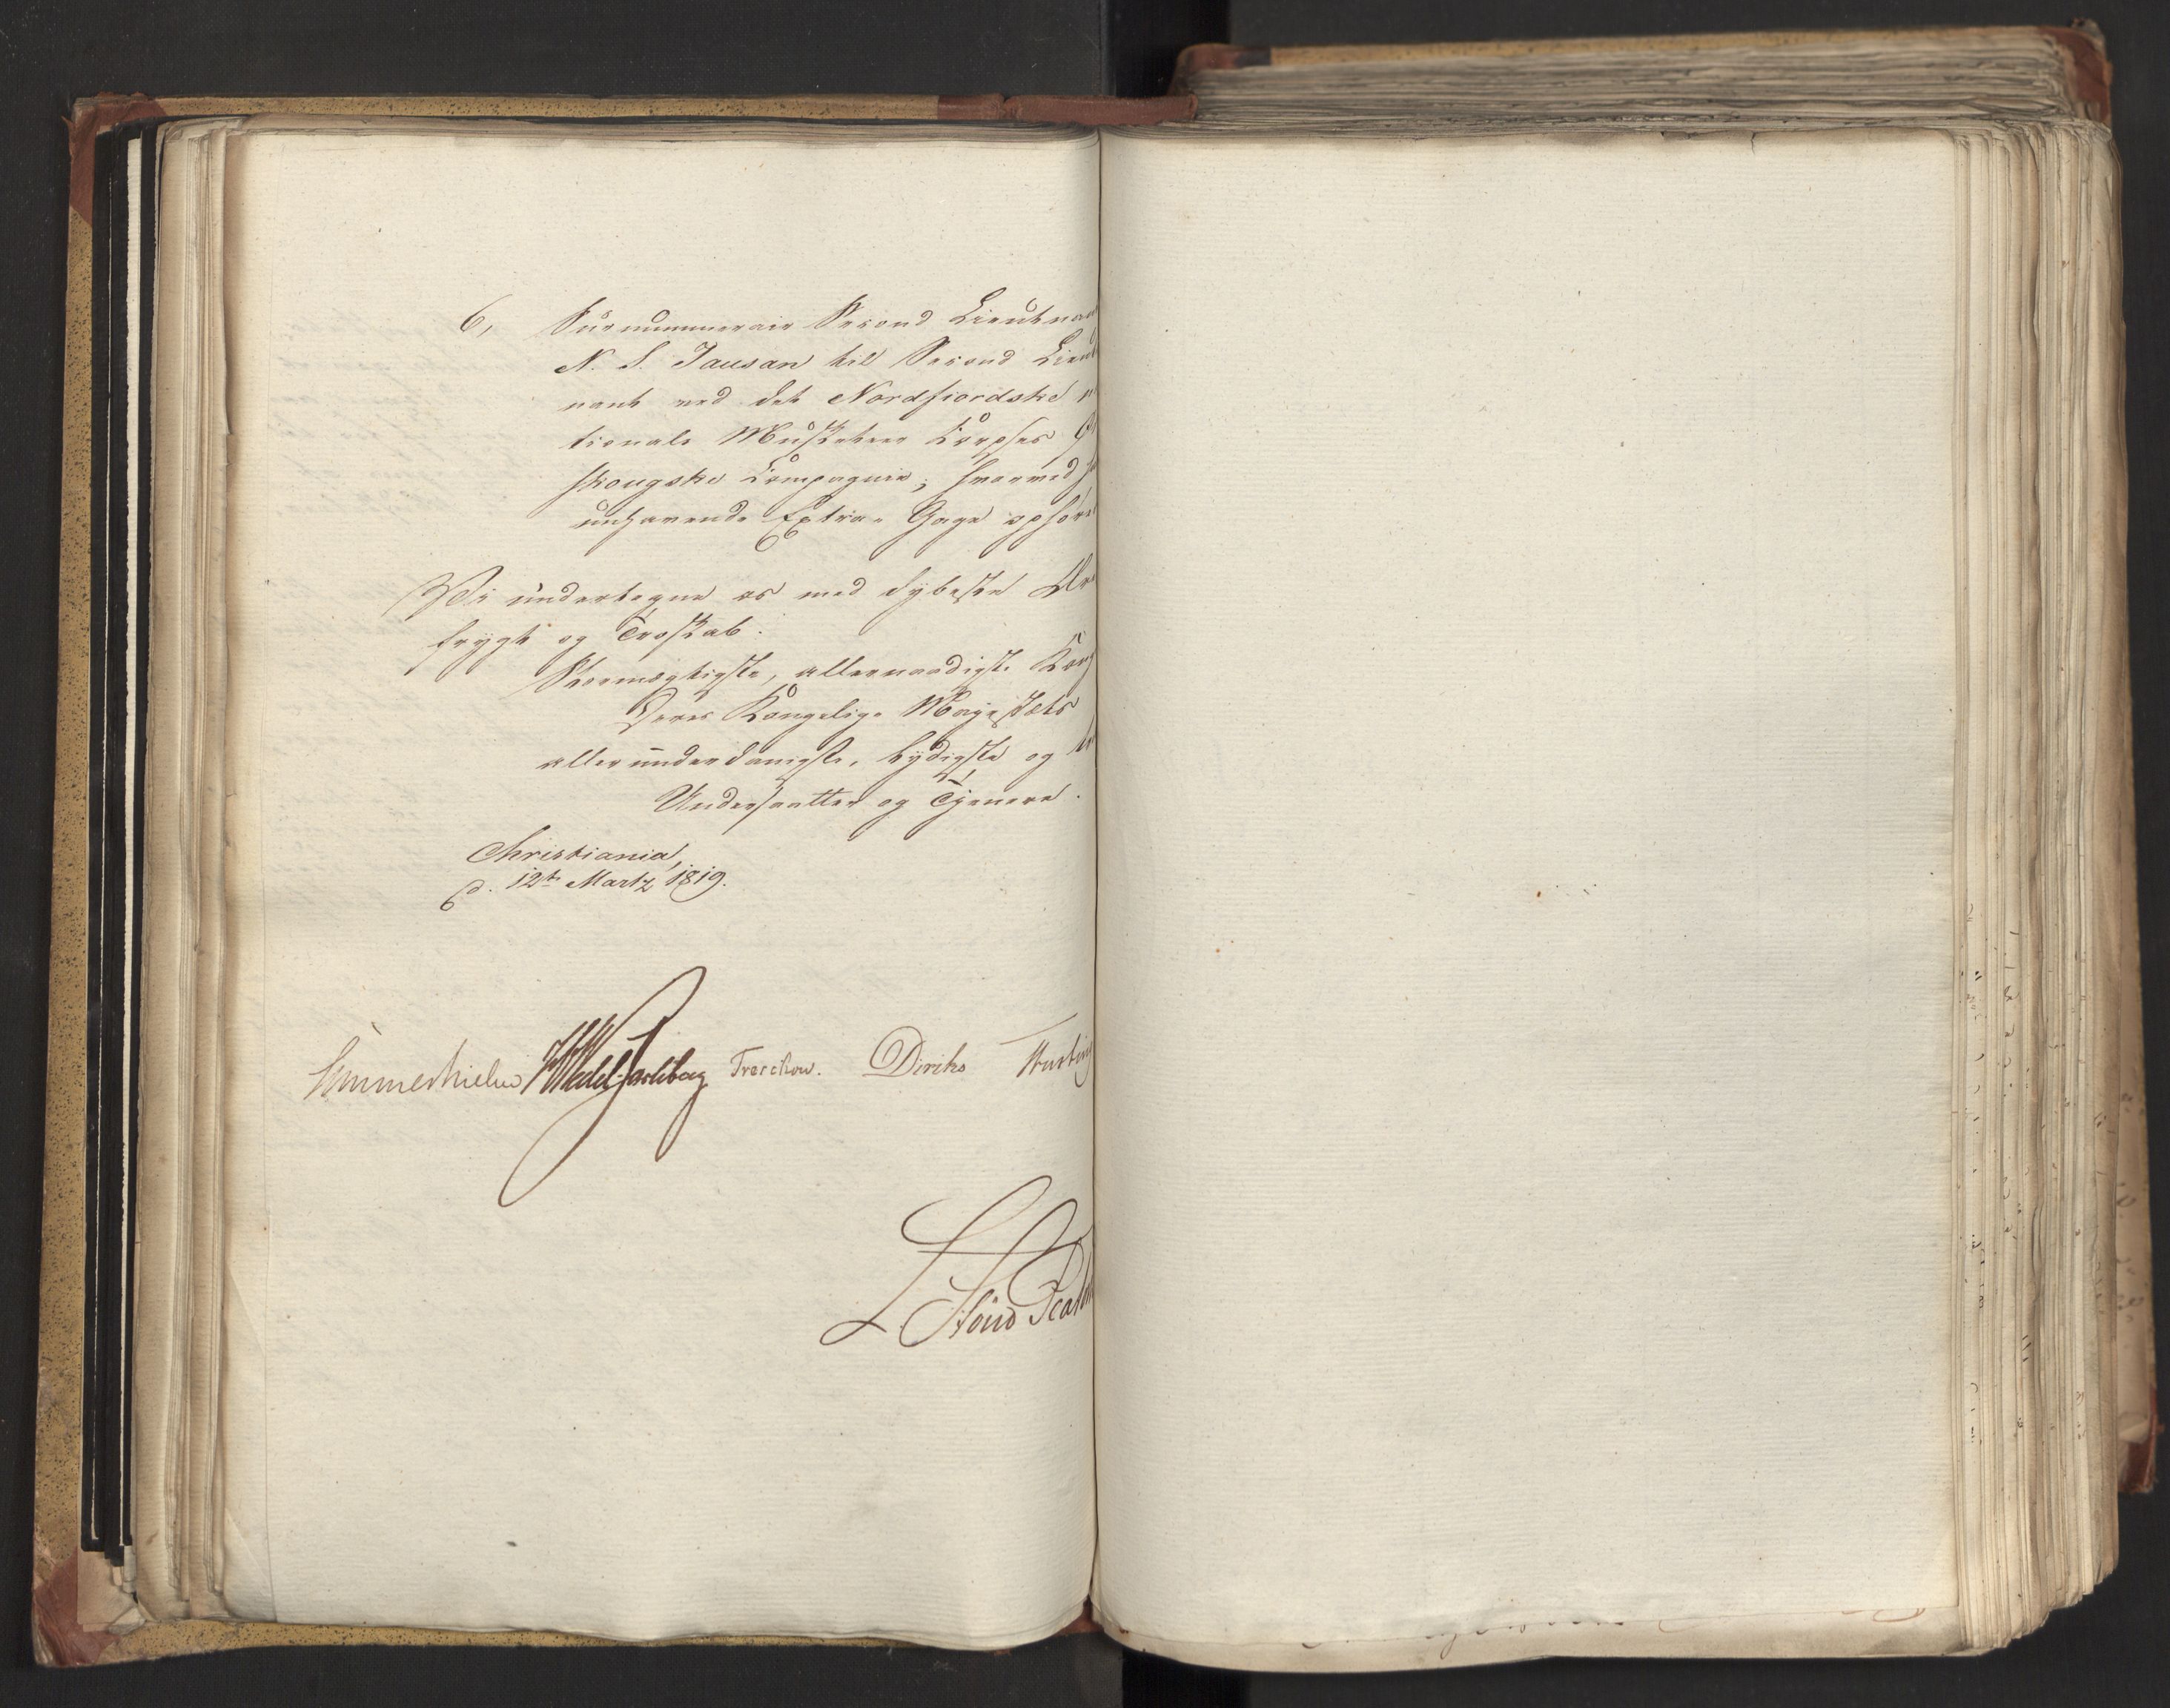 6, Surnummerair Second Lieutnan
N. S. Jausan til Second Lieut
nant ved det Nordfiordske na
tionale Musketeer Corpses
skougske Compagnie, hvorved
unhavende Extra Gage ophører
Vi undertegne os med dybeste Ær
frygt og Troskab.
Stormægtigste, allernaadigste Kong
Deres Kongelige Majestæts
allerunderdanigste, lydigste og
Undersaatter og Tjenere.
Christiania,
d. 12te Martz 1819.
Sommerhielm HWedel Jarlsberg Treschow. Diriks Hasting
L. Stoud Plat